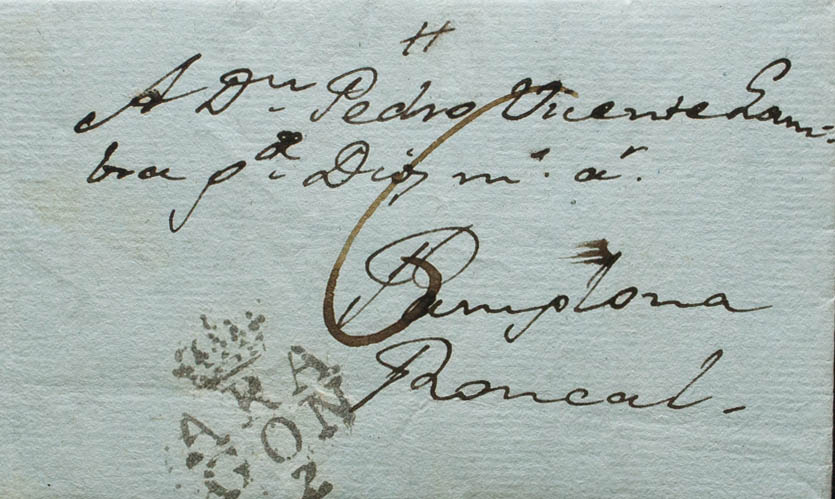 A Dn Pedro Vicente Gam-
bra gde Dios ms. as.
6
Pamplona
Roncal.
ARA
GON
2